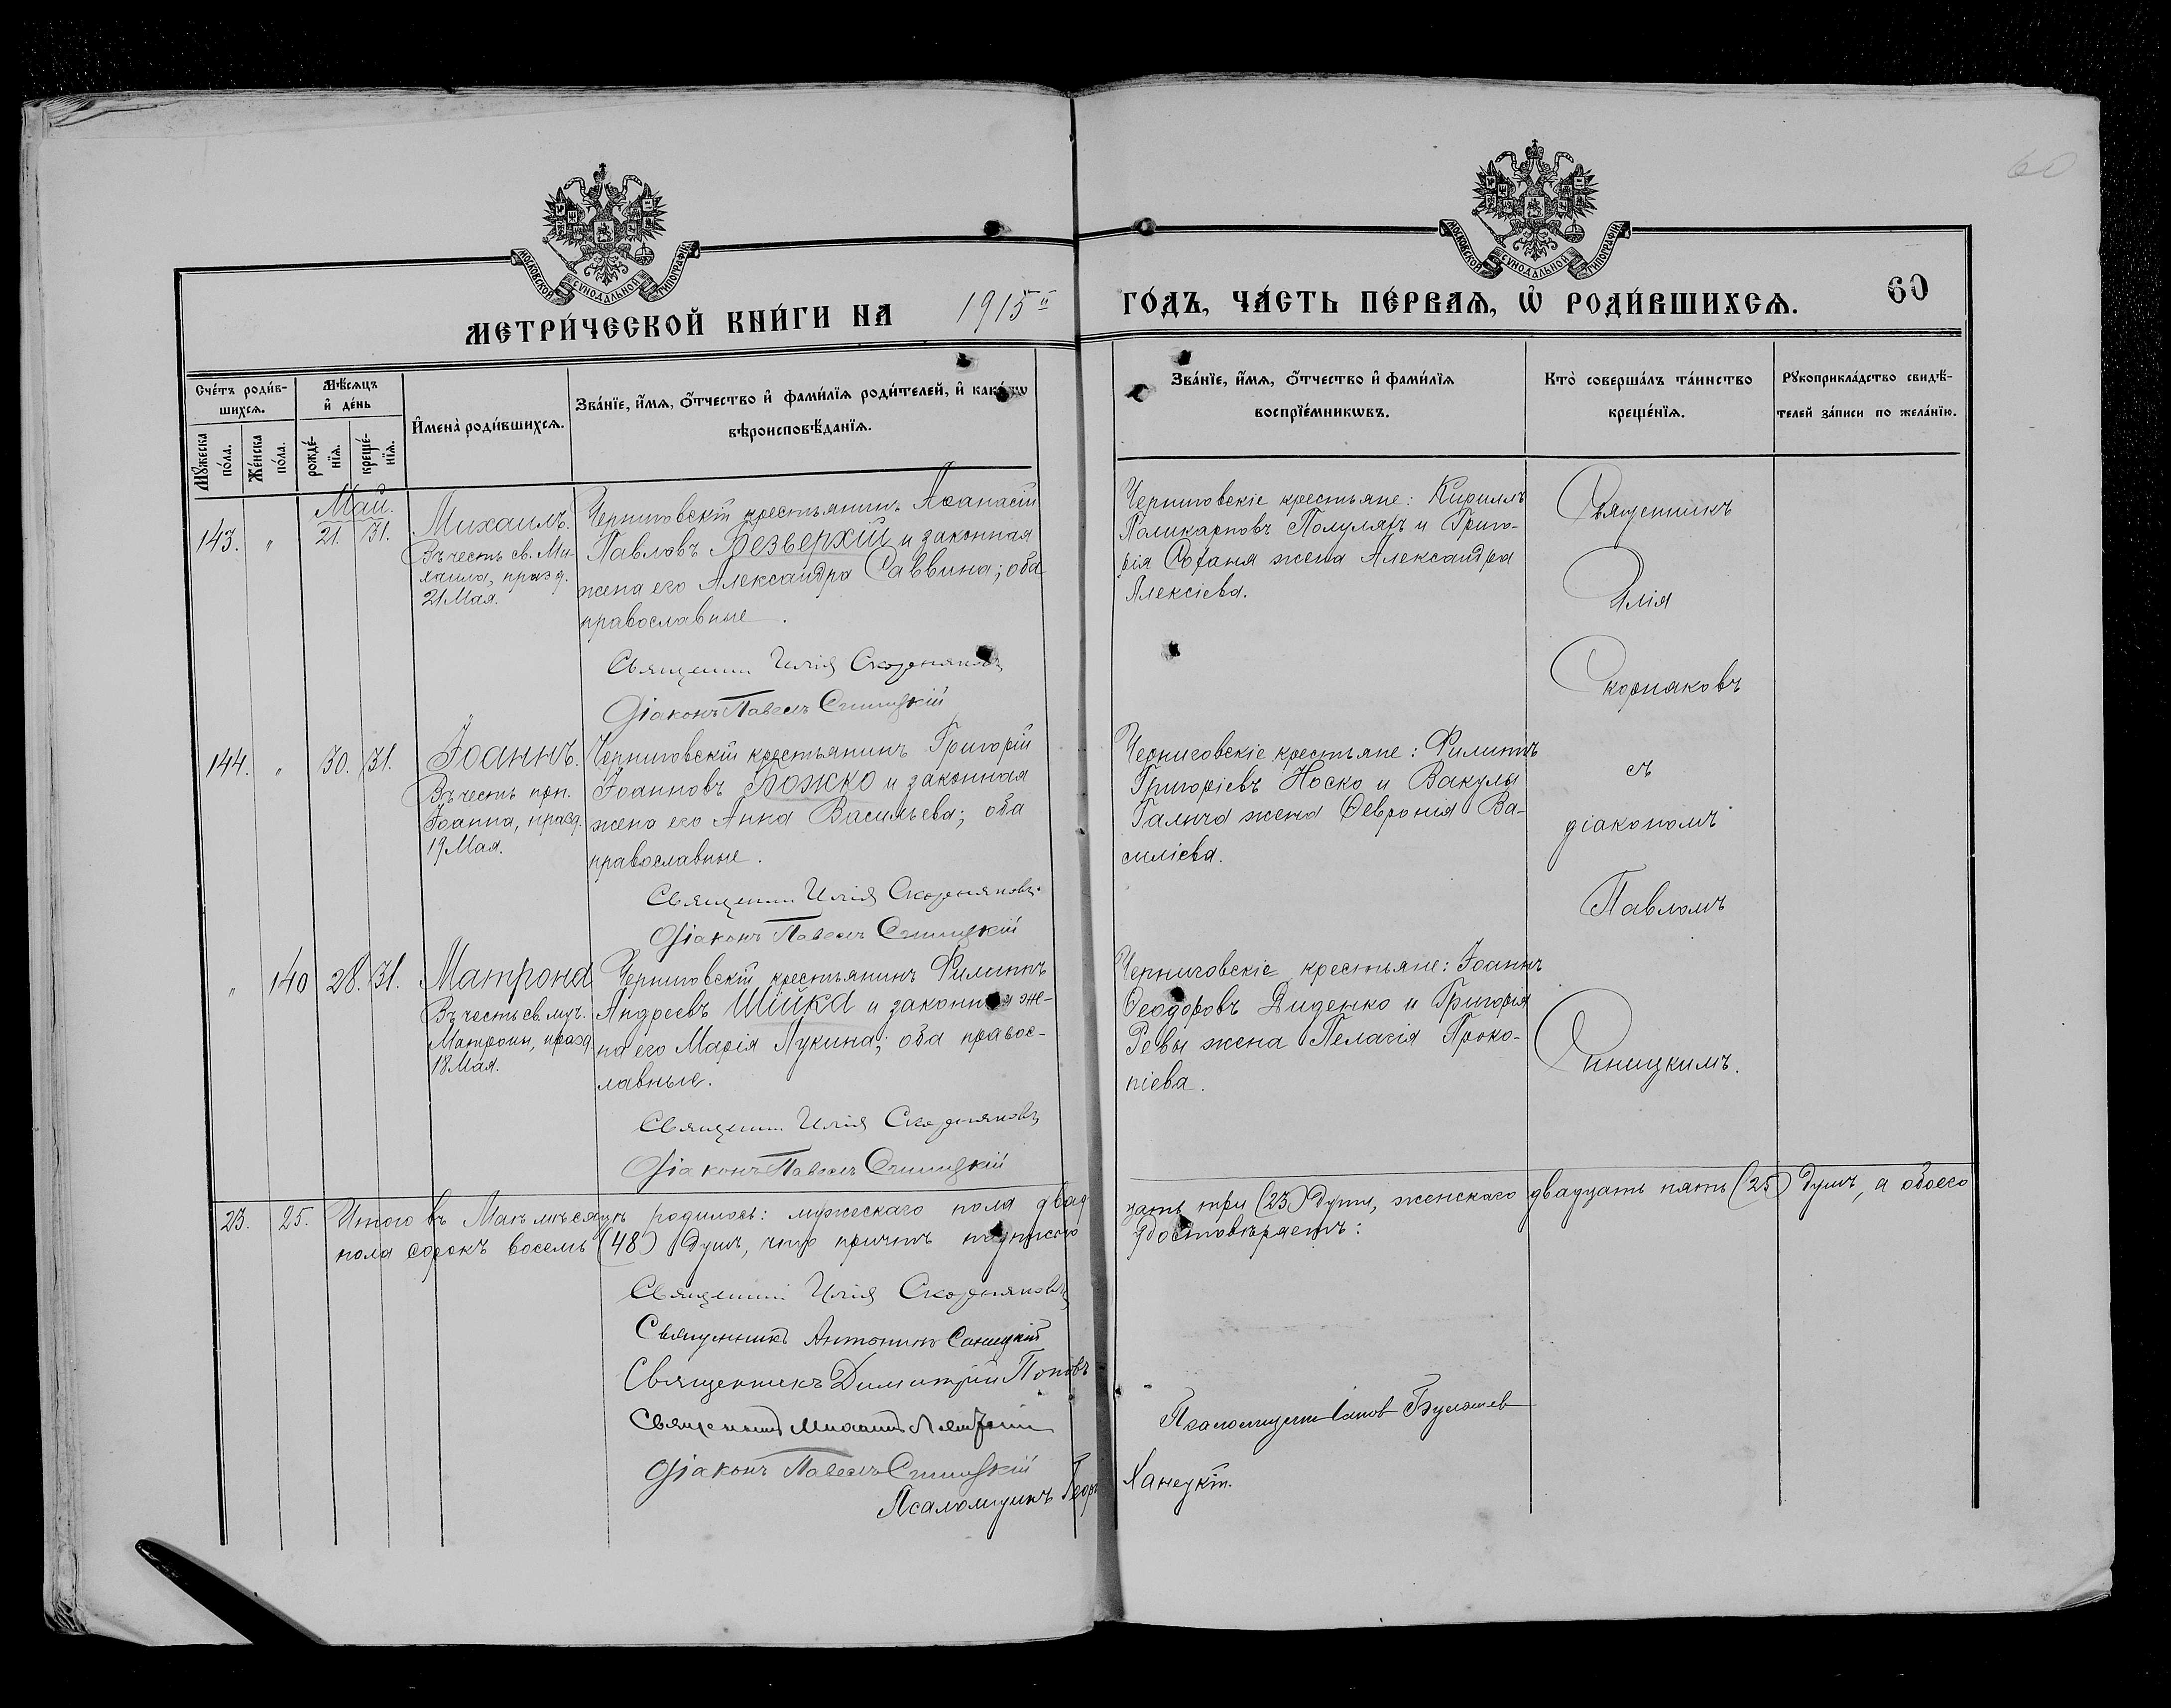 60
МОСКОВСКОЙ СѴНОДАЛЬНОЙ ТИПОГРАФІИ
МОСКОВСКОЙ СѴНОДАЛЬНОЙ ТИПОГРАФІИ
МЕТРИ́ЧЕСКОЙ КНИ́ГИ НА 1915й ГО́ДЪ, ЧА́СТЬ ПЕ́РВАЯ, Ѡ҆ РОДИ́ВШИХСЯ. 60
Сче́тъ роди́в-
шихсѧ.
Мꙋжеска по́ла.
Же́нска по́ла.
Мѣ́сѧцъ и҆ де́нь
рожде́-
нїѧ.
креще́-
нїѧ.
И҆мена̀ роди́вшихсѧ.
Зва́нїе, и҆́мѧ, ѻ҆́тчество и҆ фами́лїѧ роди́телей, и҆ како́гѡ
вѣроисповѣ́данїѧ.
Зва́нїе, и҆́мѧ, ѻ҆́тчество и҆ фами́лїѧ
воспрїе́мникѡвъ.
Кто̀ соверша́лъ та́инство
креще́нїѧ.
Рꙋкоприкла́дство свидѣ́-
телей за́писи по жела́нїю.
Май.
143. " 21. 31. Михаилъ.
Въ честь св. Ми-
хаила, празд.
21 Мая.
Черниговскій крестьянинъ Аѳанасій
Павловъ Безверхій и законная
жена его Александра Саввина; оба
православные.
Священникъ Илія Скорняковъ
Діаконъ Павелъ Синицкій
Черниговскіе крестьяне: Кириллъ
Поликарповъ Полулях и Григо-
рія Соханя жена Александра
Алексіева.
Священникъ
Илія
Скорняковъ
съ
діакономъ
Павломъ
Синицкимъ.
144. " 30. 31. Іоаннъ.
Въ честь прп.
Іоанна, празд.
19 Мая.
Черниговскій крестьянинъ Григорій
Іоанновъ Божко и законная
жена его Анна Васильева; оба
православные.
Священникъ Илія Скорняковъ.
Діаконъ Павелъ Синицкій
Черниговскіе крестьяне: Филиппъ
Григоріевъ Носко и Вакулы
Галича жена Ѳевронія Ва-
силіева.
" 140 28. 31. Матрона
Въ честь св. муч.
Матроны, празд.
18 Мая.
Черниговскій крестьянинъ Филиппъ
Андреевъ Шійка и законная же-
на его Марія Лукина; оба правос-
лавные.
Священникъ Илія Скорняковъ
Діаконъ Павелъ Синицкій
Черниговскіе крестьяне: Іоаннъ
Ѳеодоровъ Диденко и Григорія
Ревы жена Пелагія Проко-
піева.
23. 25. Итого въ Маѣ мѣсяцѣ родилось: мужескаго пола двад
цать три (23) души, женскаго двадцать пять (25) душъ, а обоего
пола сорокъ восемь (48) душъ, что причтъ подписью
удостовѣряетъ:
Священникъ Илія Скорняковъ
Священникъ Антонинъ Синицкій
Священникъ Димитрій Поповъ
Священникъ Михаилъ
Діаконъ Павелъ Синицкій
Псаломщикъ Георг Ханецкій.
Псаломщикъ